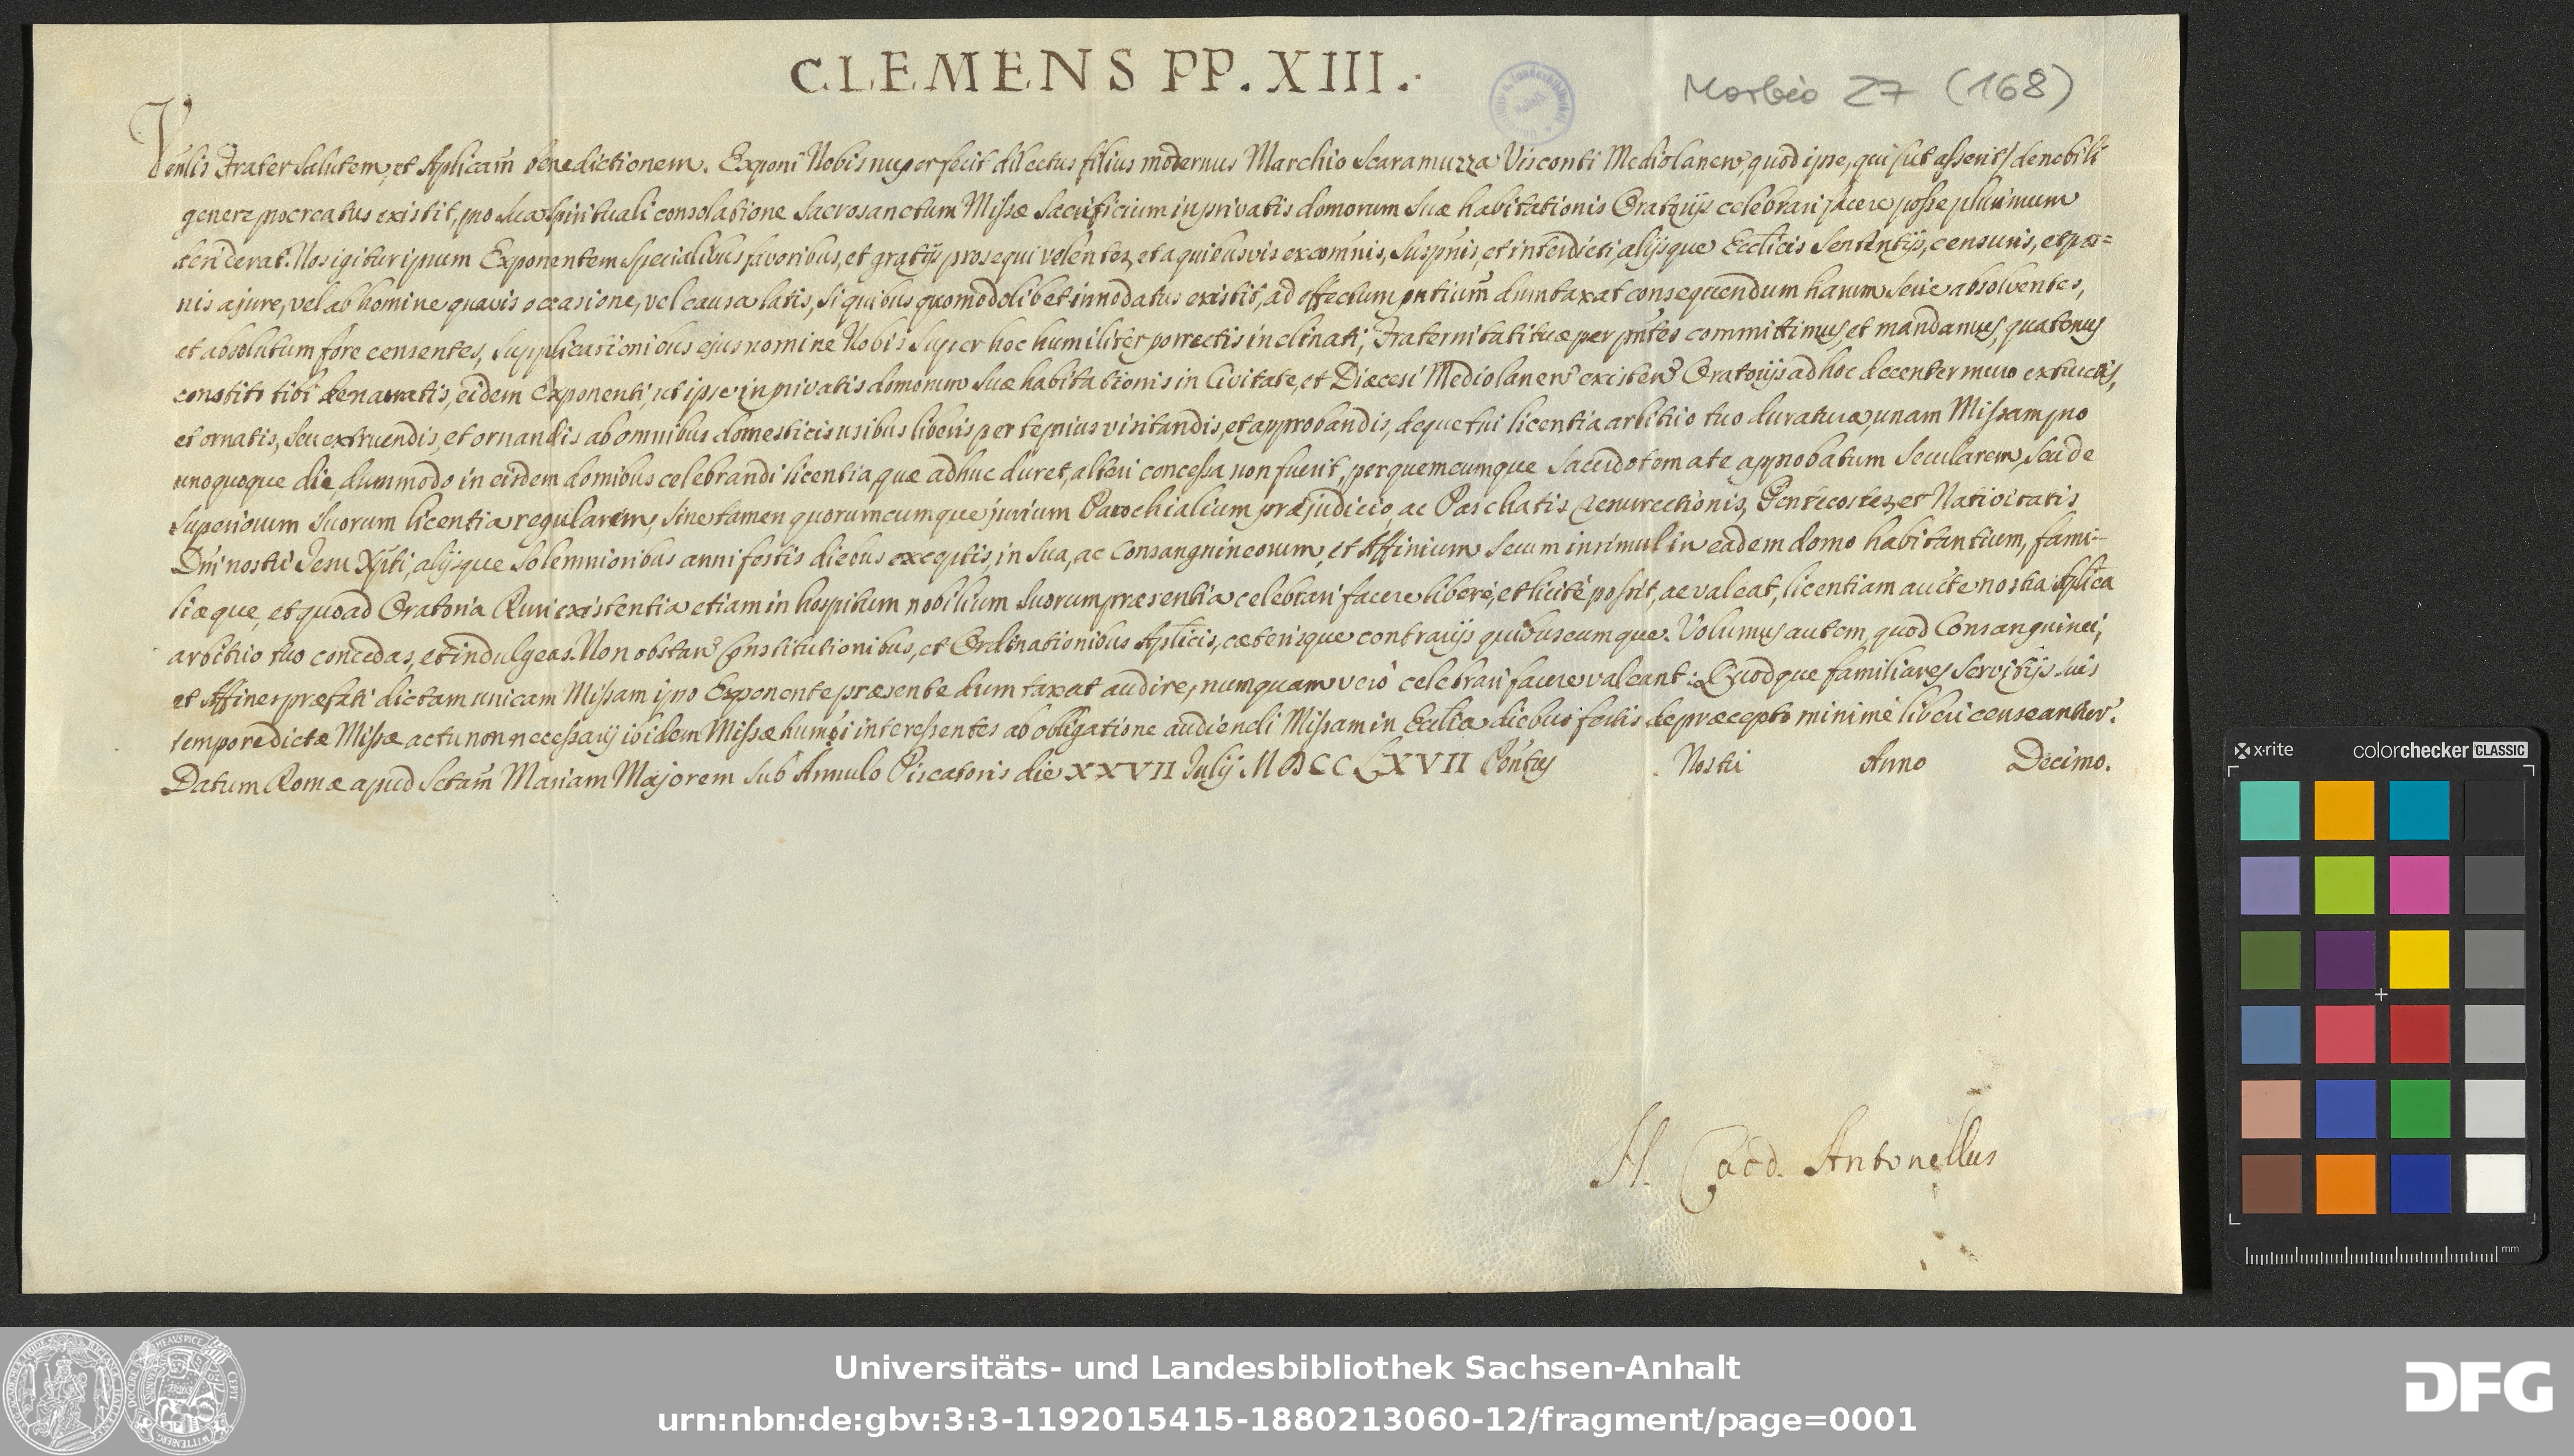 CLEMENS PP. XIII.
Morbio 27 (168)
Venlis Frater Salutem, et Aplicam̄ benedictionem. Exponi Nobis nuper fecit dilectus filius modernus Marchio Scaramuzza Visconti Mediolanen̄, quod ipse, qui (ut asserit) de nobili
genere procreatus existit, pro sua spirituali consolatione Sacrosanctum Missæ Sacrificium in privatis domorum suæ habitationis Oratorijs celebrari facere posse plurimum
desiderat. Nos igitur ipsum Exponentem specialibus favoribus, et gratijs prosequi volentes, et a quibusvis excom̄nis, suspn̄is, et interdicti, alijsque Ecclicis Sententijs, censuris, et pœ=
nis a jure, vel ab homine quavis occasione, vel causa latis, si quibus quomodolibet innodatus existit, ad effectum pn̄tium dumtaxat consequendum harum serie absolventes,
et absolutum fore censentes, supplicationibus ejus nomine Nobis super hoc humiliter porrectis inclinati; Fraternitati tuæ per pn̄tes committimus, et mandamus, quatenus
constito tibi de narratis, eidem Exponenti, ut ipse in privatis domorum suæ habitationis in Civitate, et Diœcesi Mediolanen̄ existen̄ Oratorijs ad hoc decenter muro extructis,
et ornatis, seu extruendis, et ornandis ab omnibus domesticis usibus liberis per te prius visitandis, et approbandis, deque tui licentia arbitrio tuo duratura, unam Missam pro
unoquoque die, dummodo in eisdem domibus celebrandi licentia, quæ adhuc duret, alteri concessa non fuerit, per quemcumque Sacerdotem a te approbatum Secularem, seu de
superiorum suorum licentia regularem, sine tamen quorumcumque jurium Parochialium præjudicio, ac Paschatis Resurrectionis, Pentecostes, et Nativitatis
Dn̄i nostri Jesu Xp̄ti, alijsque solemnioribus anni festis diebus exceptis, in sua, ac Consanguineorum, et Affinium secum insimul in eadem domo habitantium, fami-
liæque, et quoad Oratoria Ruri existentia etiam in hospitum nobilium suorum præsentia celebrari facere liberè, et licitè possit, ac valeat, licentiam aucte nostra Aplica
arbitrio tuo concedas, et indulgeas. Non obstan̄ Constitutionibus, et Ordinationibus Aplicis, cæterisque contrarijs quibuscumque. Volumus autem, quod Consanguinei,
et Affines præfati dictam unicam Missam ipso Exponente præsente dumtaxat audire, numquam verò celebrari facere valeant: Quodque familiares servitijs suis
tempore dictæ Missæ actu non necessarij ibidem Missæ humōi interessentes ab obligatione audiendi Missam in Ecclia diebus festis de præcepto minimè liberi censeantur.
Datum Romæ apud Sctam̄ Mariam Majorem sub Annulo Piscatoris die XXVII Julij MDCCLXVII Pon̄tus Nostri Anno Decimo.
N. Card. Antonellus
x·rite colorchecker CLASSIC
mm
Universitäts- und Landesbibliothek Sachsen-Anhalt
urn:nbn:de:gbv:3:3-1192015415-1880213060-12/fragment/page=0001
DFG